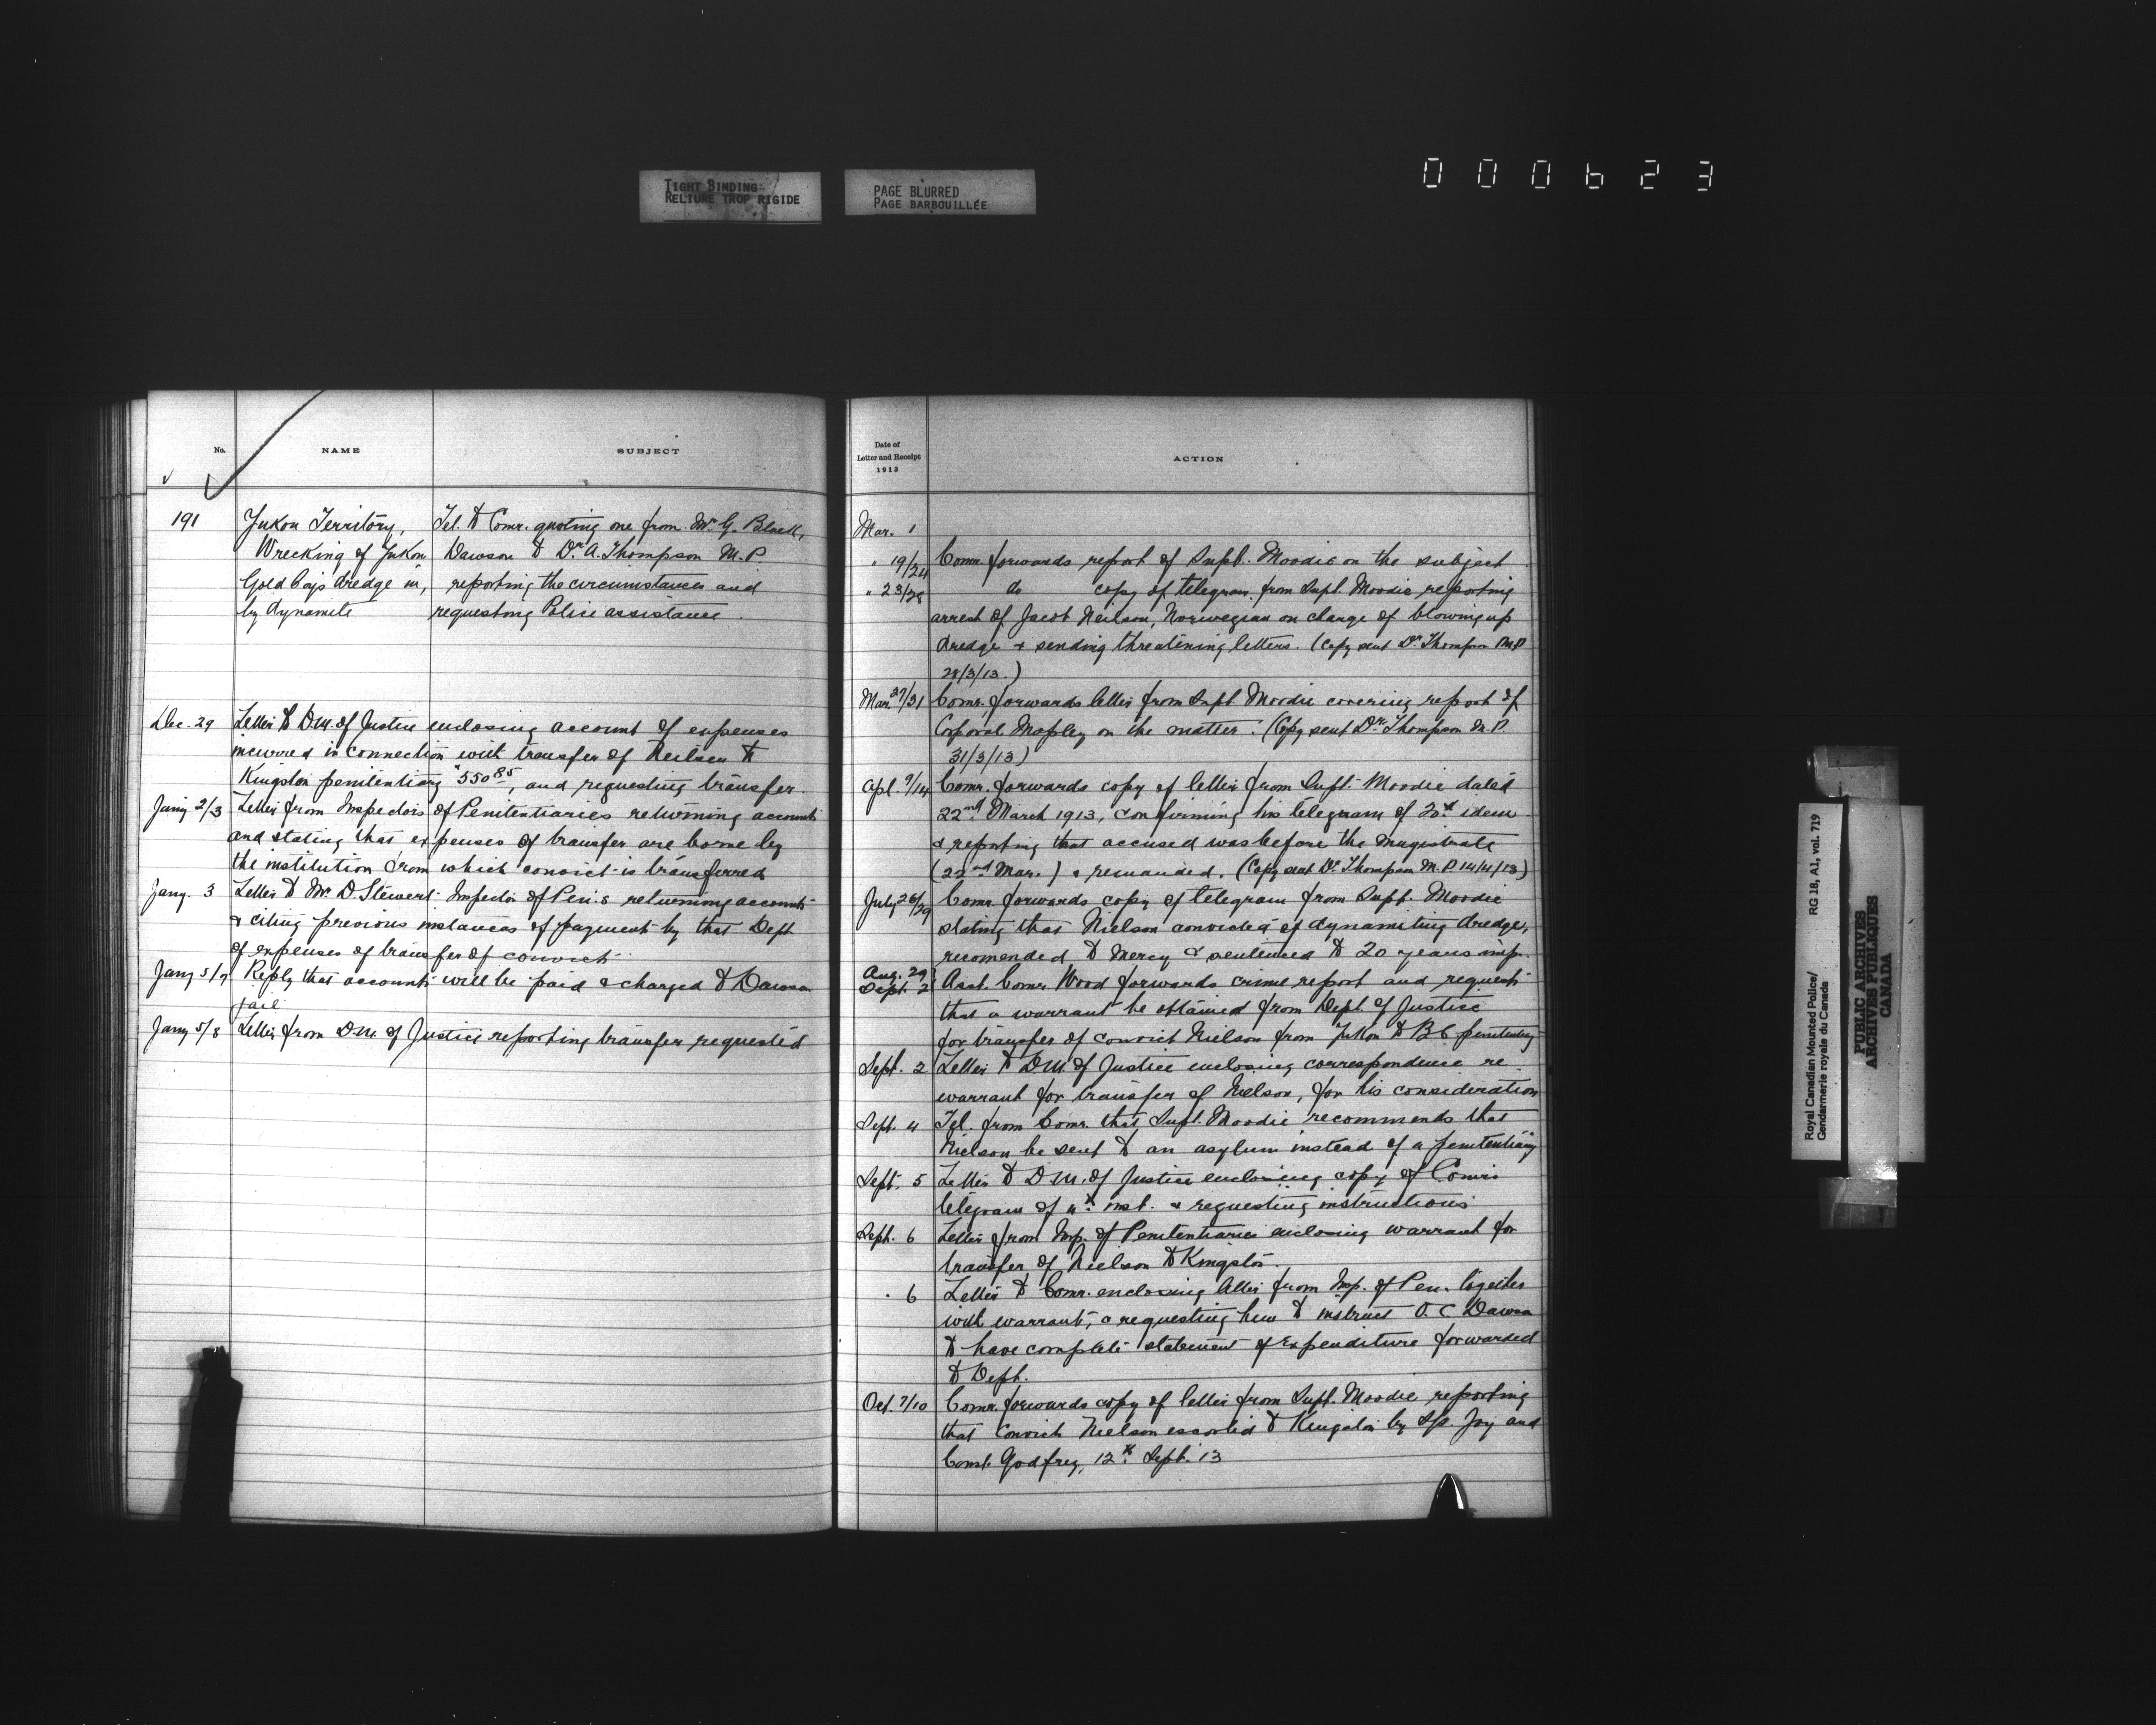 TIGHT BINDING
RELIURE TROP RIGIDE
PAGE BLURRED
PAGE BARBOUILLÉE
000623
No. NAME SUBJECT
191 Yukon Territory, Tel. to Comr. quoting one from Mr. G. Black,
Wrecking of Yukon Dawson to Dr. A. Thompson M.P.
Gold Coy's dredge in, reporting the circumstances and
by dynamite requesting Police assistance.
Dec. 29 Letter to D.M. of Justice enclosing account of expenses
incurred in connection with transfer of Neilsen to
Kingston penitentiary $550 85, and requesting transfer
Jany 2/3 Letter from Inspectors of Penitentiaries returning accounts
and stating that expenses of transfer are borne by
the institution from which convict is transferred
Jany. 3 Letter to Mr. D. Stewart Inspector of Pen.s returning accounts
& citing previous instances of payment by that Dept
of expenses of transfer of convict
Jany 5/7 Reply that accounts will be paid & charged to Dawson
jail
Jany 5/8 Letter from D.M. of Justice reporting transfer requested
Date of
Letter and Receipt
1913
ACTION
Mar. 1
" 19/24 Comr. forwards report of Supt. Moodie on the subject.
" 23/28 do copy of telegram from Supt. Moodie reporting
arrest of Jacob Neilson, Norwegian on charge of blowing up
dredge + sending threatening letters. (Copy sent Dr. Thompson M.P
28/3/13.)
Mar. 27/31 Comr. forwards letter from Supt Moodie covering report of
Corporal Mapley on the matter. (Copy sent Dr. Thompson M.P.
31/3/13)
Apl. 9/14 Comr. forwards copy of letter from Supt. Moodie dated
22nd March 1913, confirming his telegram of 20th idem
& reporting that accused was before the magistrate
(22nd Mar.) & remanded. (Copy sent Dr. Thompson M.P. 14/4/13)
July 26/29 Comr. forwards copy of telegram from Supt. Moodie
stating that Nielson convicted of dynamiting dredge,
recomended to Mercy & sentenced to 20 years imp.
Aug. 29
Sept. 2 Asst. Comr. Wood forwards crime report and requests
that a warrant be obtained from Dept. of Justice
for transfer of convict Nielson from Yukon to B.C. penitentiary
Sept. 2 Letter to D.M. of Justice enclosing correspondence re
warrant for transfer of Nielson, for his consideration
Sept. 4 Tel. from Comr. that Supt. Moodie recommends that
Nielson be sent to an asylum instead of a penitentiary
Sept. 5 Letter to D.M. of Justice enclosing copy of Comr's
telegram of 4th inst. & requesting instructions
Sept. 6 Letter from Insp. of Penitentiaries enclosing warrant for
transfer of Nielson to Kingston.
" 6 Letter to Comr. enclosing letter from Insp. of Pen. together
with warrant, & requesting him to instruct O.C. Dawson
to have complete statement of Expenditure forwarded
to Dept.
Oct. 7/10 Comr. forwards copy of letter from Supt. Moodie reporting
that convict Nielson escorted to Kingston by Joy and
Const. Godfrey, 12th Sept. 13
Royal Canadian Mounted Police/
Gendarmerie royale du Canada
RG 18, A1, vol. 719
PUBLIC ARCHIVES
ARCHIVES PUBLIQUES
CANADA